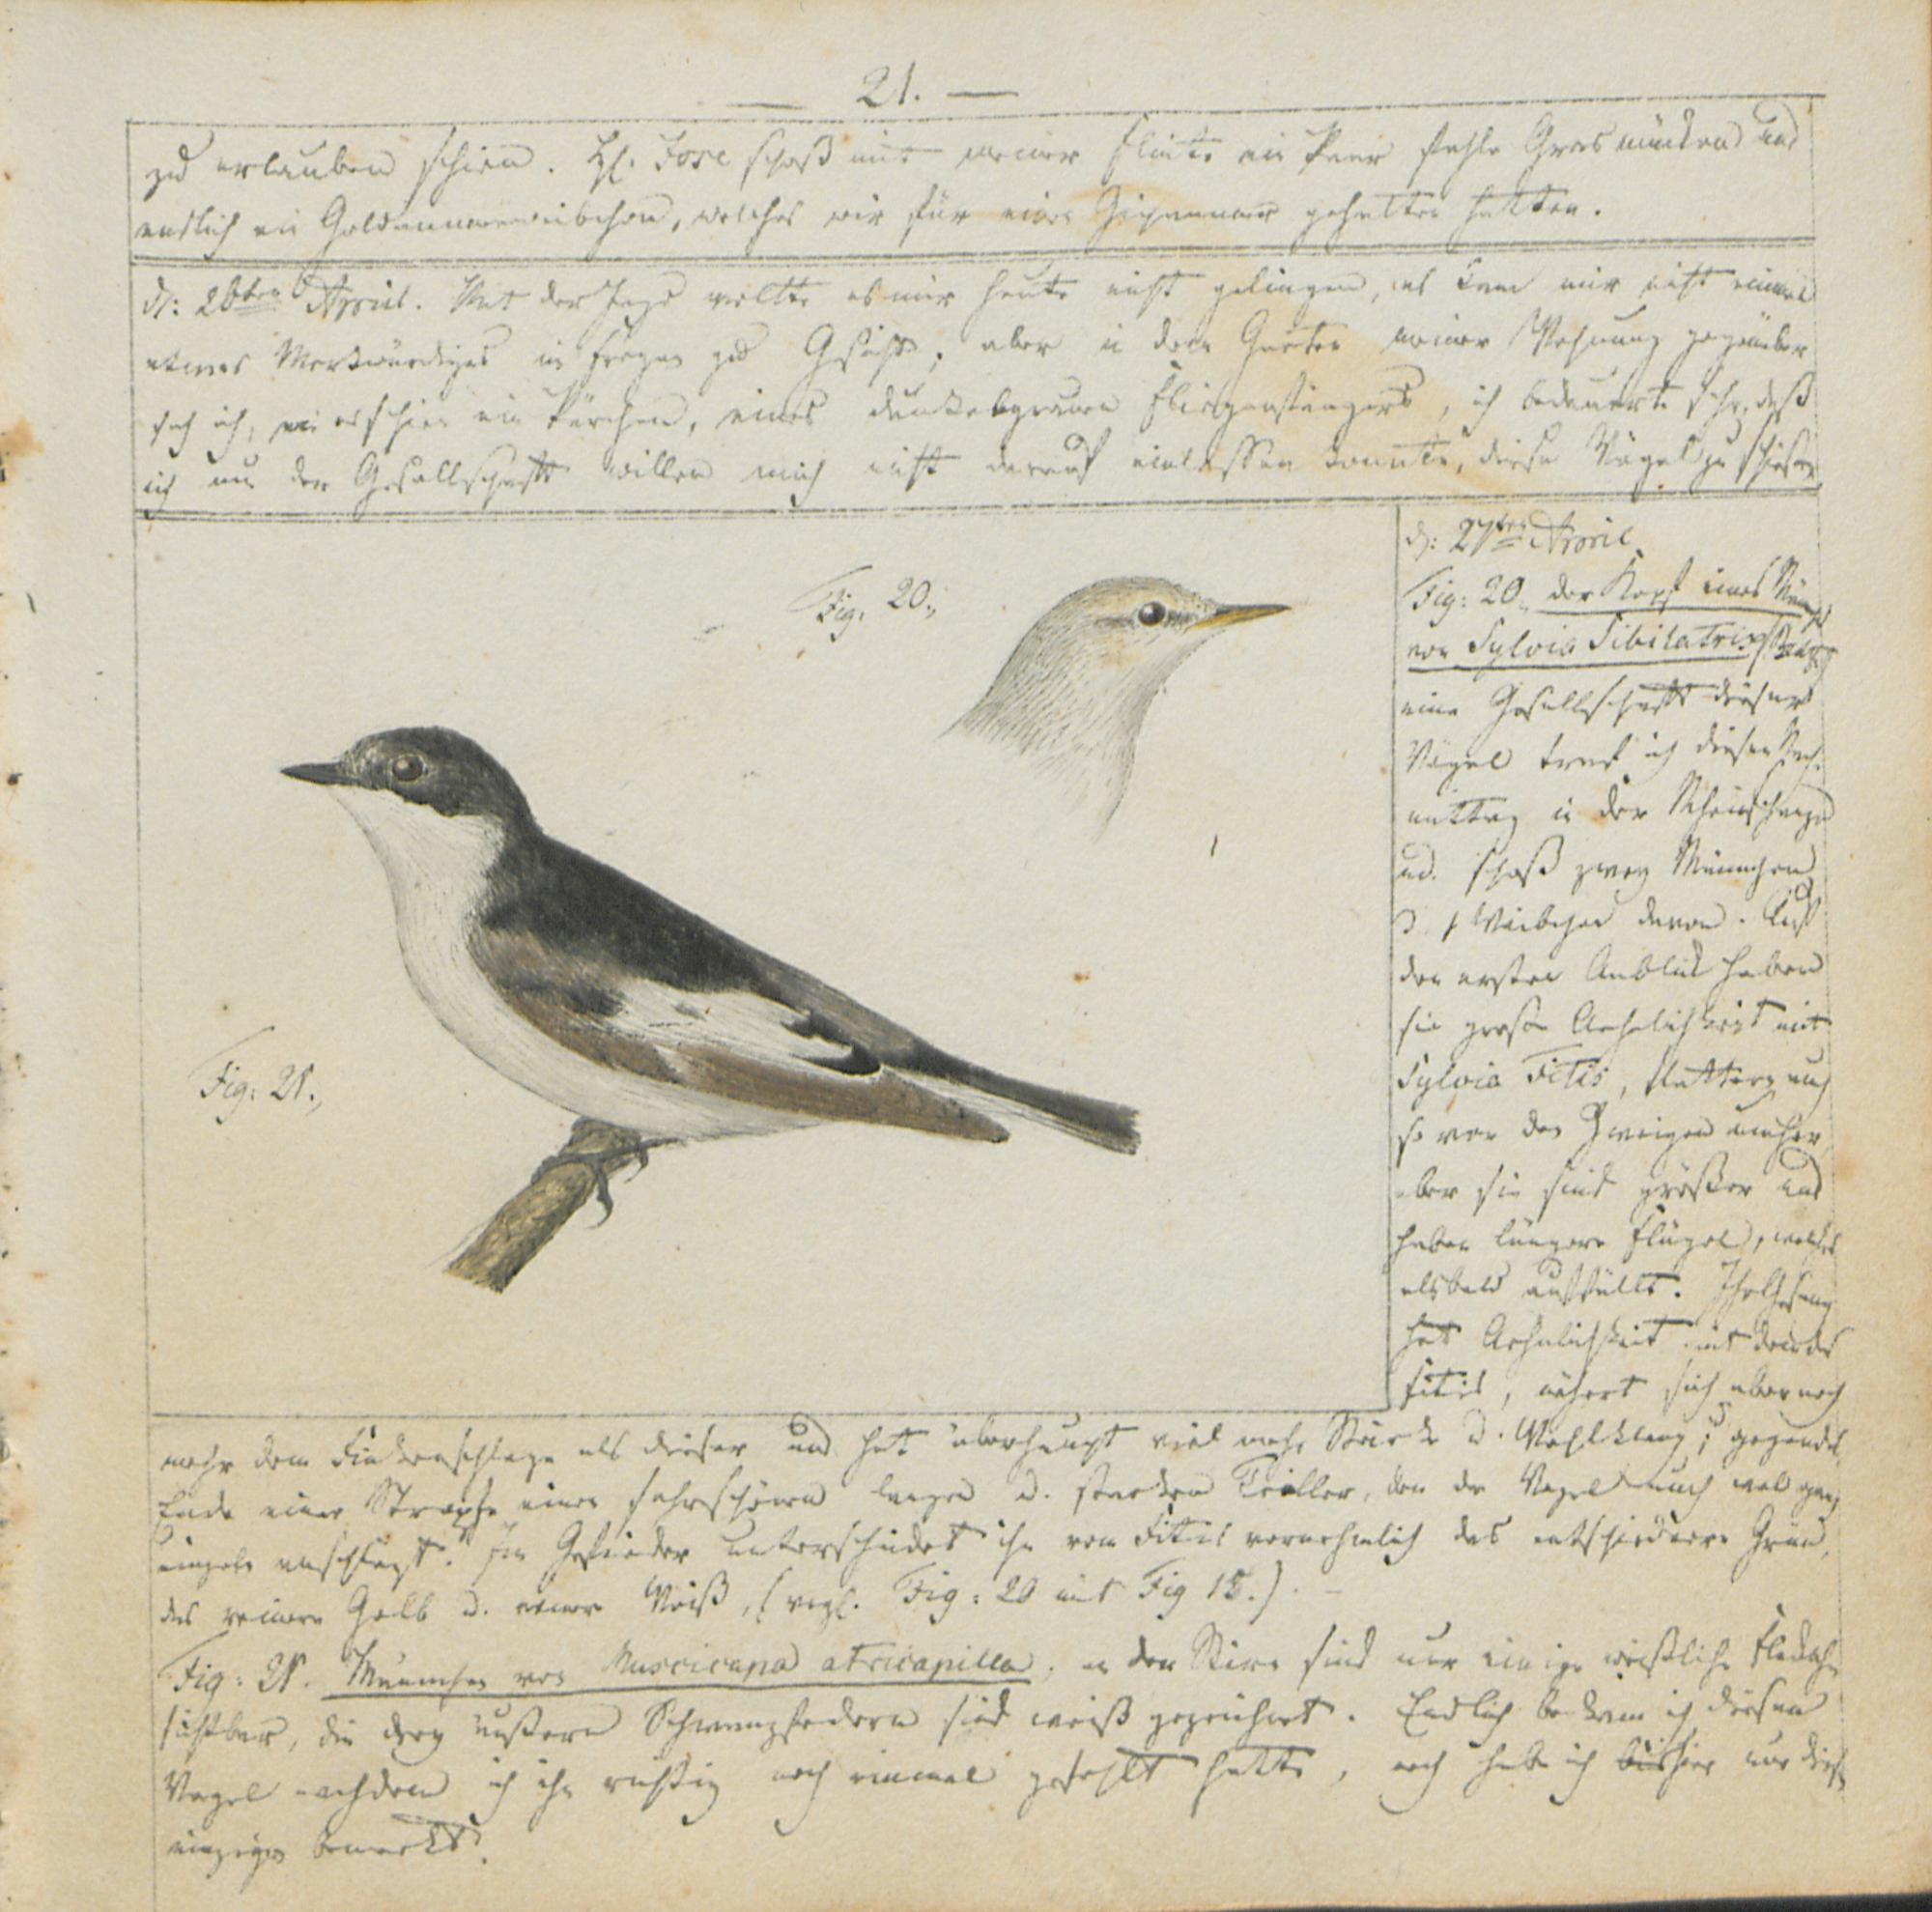 — 21. —
zu erlauben schien. Hl. Jose schoß mit meiner Flinte ein Paar fahle Grasmücken und
endlich ein Goldammerweibchen, welches wir für einen Zipammer gehalten hatten.
d: 26ten April. Mit der Jagd wollte es mir heute nicht gelingen, es kam mir nicht einmal
etwas Merkwürdiges in Frage zu Gesicht; aber in dem Garten meiner Wohnung gegenüber
sah ich, wie es schien ein Pärchen, eines dunkelgrauen Fliegenfängers, ich bedauerte sehr, daß
ich um der Gesellschaft willen mich nicht darauf einlassen konnte, diese Vögel zu schießen
Fig. 20.,
Fig: 21.,
d: 27ten April.
Fig: 20., der Kopf eines
von Sylvia Sibilatrix
eine Gesellschaft dieser
Vögel traf ich diesen Nach-
mittag in der
und. schoß zwey Männchen
u. 1 Weibchen davon. Auf
den ersten Anblick haben
sie große Aehnlichkeit mit
Sylvia Fitis, flattern auch
so vor den Zweigen umher
aber sie sind größer und
haben längere Flügel, welches
alsbald auffällt. Ihr Gesang
hat Aehnlichkeit mit dem des
Fitis, nähert sich aber noch
mehr dem Finkenschlage als dieser und hat überhaupt viel mehr Stärke u. Wohlklang; gegen das
Ende einer Strophe einen sehr schönen langen u. starken Triller, den der Vogel auch wol ganz
einzeln anschlägt. Im Gefieder unterscheidet ihn vom Fitis vornehmlich das entschiednere Grün,
das reinere Gelb u. reiner Weiß, (vergl. Fig: 20 mit Fig 15.). —
Fig: 21. Männchen von Muscicapa atricapilla, an der Stirn sind nur einige weißliche Fledchen
sichtbar, die drey äußern Schwanzfedern sind weiß gezeichnet. Endlich bekam ich diesen
Vogel nachdem ich ihn richtig noch einmal gefehlt hatte, noch habe ich bishier nur diesen
einzigen bemerkt.